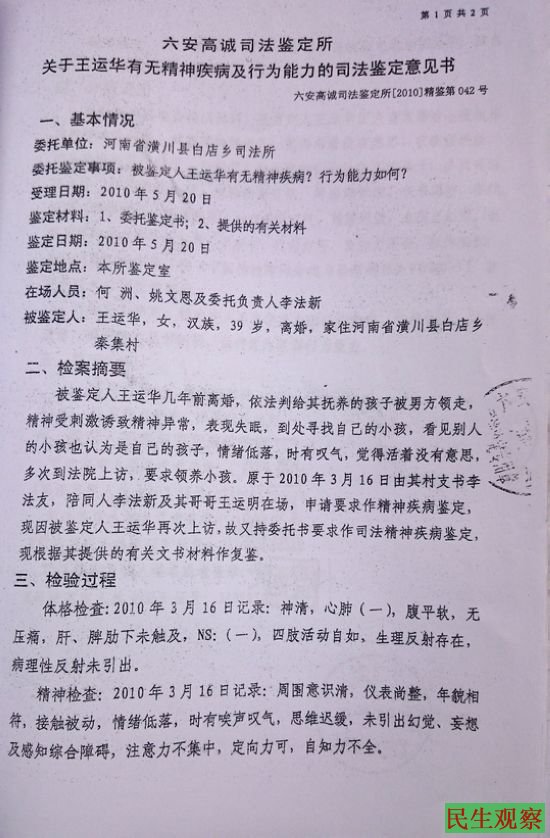 第 1 页 共 2 页
六安高诚司法鉴定所
关于王运华有无精神疾病及行为能力的司法鉴定意见书
六安高诚司法鉴定所[2010]精鉴第 042 号
一、基本情况
委托单位：河南省潢川县白店乡司法所
委托鉴定事项：被鉴定人王运华有无精神疾病？行为能力如何？
受理日期：2010 年 5 月 20 日
鉴定材料：1、委托鉴定书；2、提供的有关材料
鉴定日期：2010 年 5 月 20 日
鉴定地点：本所鉴定室
在场人员：何 洲、姚文恩及委托负责人李法新
被鉴定人：王运华，女，汉族，39 岁，离婚，家住河南省潢川县白店乡
秦集村
二、检案摘要
被鉴定人王运华几年前离婚，依法判给其抚养的孩子被男方领走，
精神受刺激诱致精神异常，表现失眠，到处寻找自己的小孩，看见别人
的小孩也认为是自己的孩子，情绪低落，时有叹气，觉得活着没有意思，
多次到法院上访，要求领养小孩。原于 2010 年 3 月 16 日由其村支书李
法友，陪同人李法新及其哥哥王运明在场，申请要求作精神疾病鉴定，
现因被鉴定人王运华再次上访，故又持委托书要求作司法精神疾病鉴定，
现根据其提供的有关文书材料作复鉴。
三、检验过程
体格检查：2010 年 3 月 16 日记录：神清，心肺（一），腹平软，无
压痛，肝、脾肋下未触及，NS：（一），四肢活动自如，生理反射存在，
病理性反射未引出。
精神检查：2010 年 3 月 16 日记录：周围意识清，仪表尚整，年貌相
符，接触被动，情绪低落，时有唉声叹气，思维迟缓，未引出幻觉、妄想
及感知综合障碍，注意力不集中，定向力可，自知力不全。
民生观察